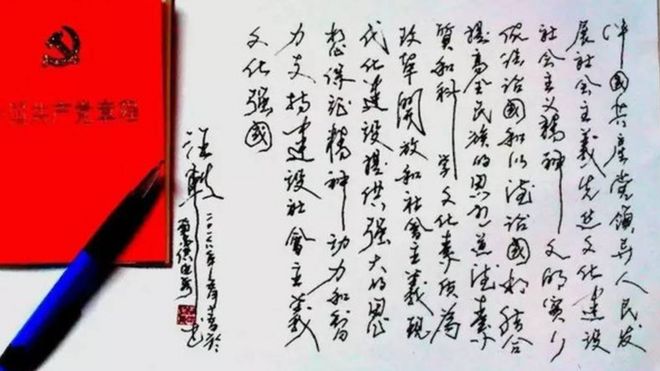 中國共產党領导人民发
展社会主義先进文化建设
社会主义精神文明实行
依法治國和以德治國相结合
提高全民族的思想道德素
質和科学文化素质为
改革開放和社會主義现
代化建设提供强大的思
想保证精神动力和智
力支持建设社會主義
文化强國
共产党章程